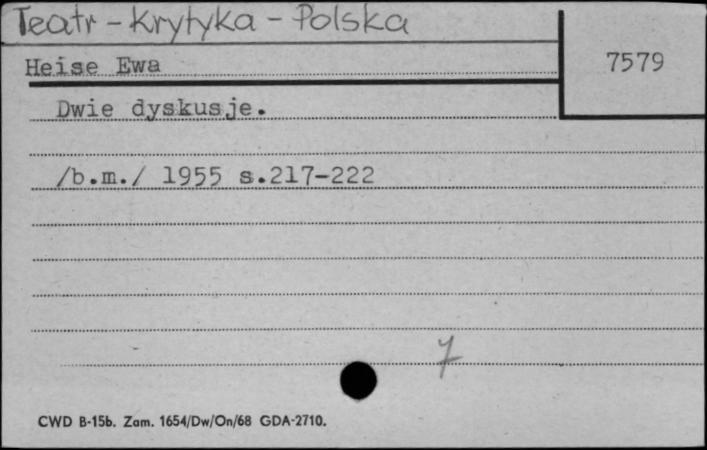 Teatr - Krytyka - Polska
Heise Ewa
7579
Dwie dyskusje.
/b.m./ 1955 s.217-222
7
CWD B-15b. Zam. 1654/Dw/On/68 GDA-2710.